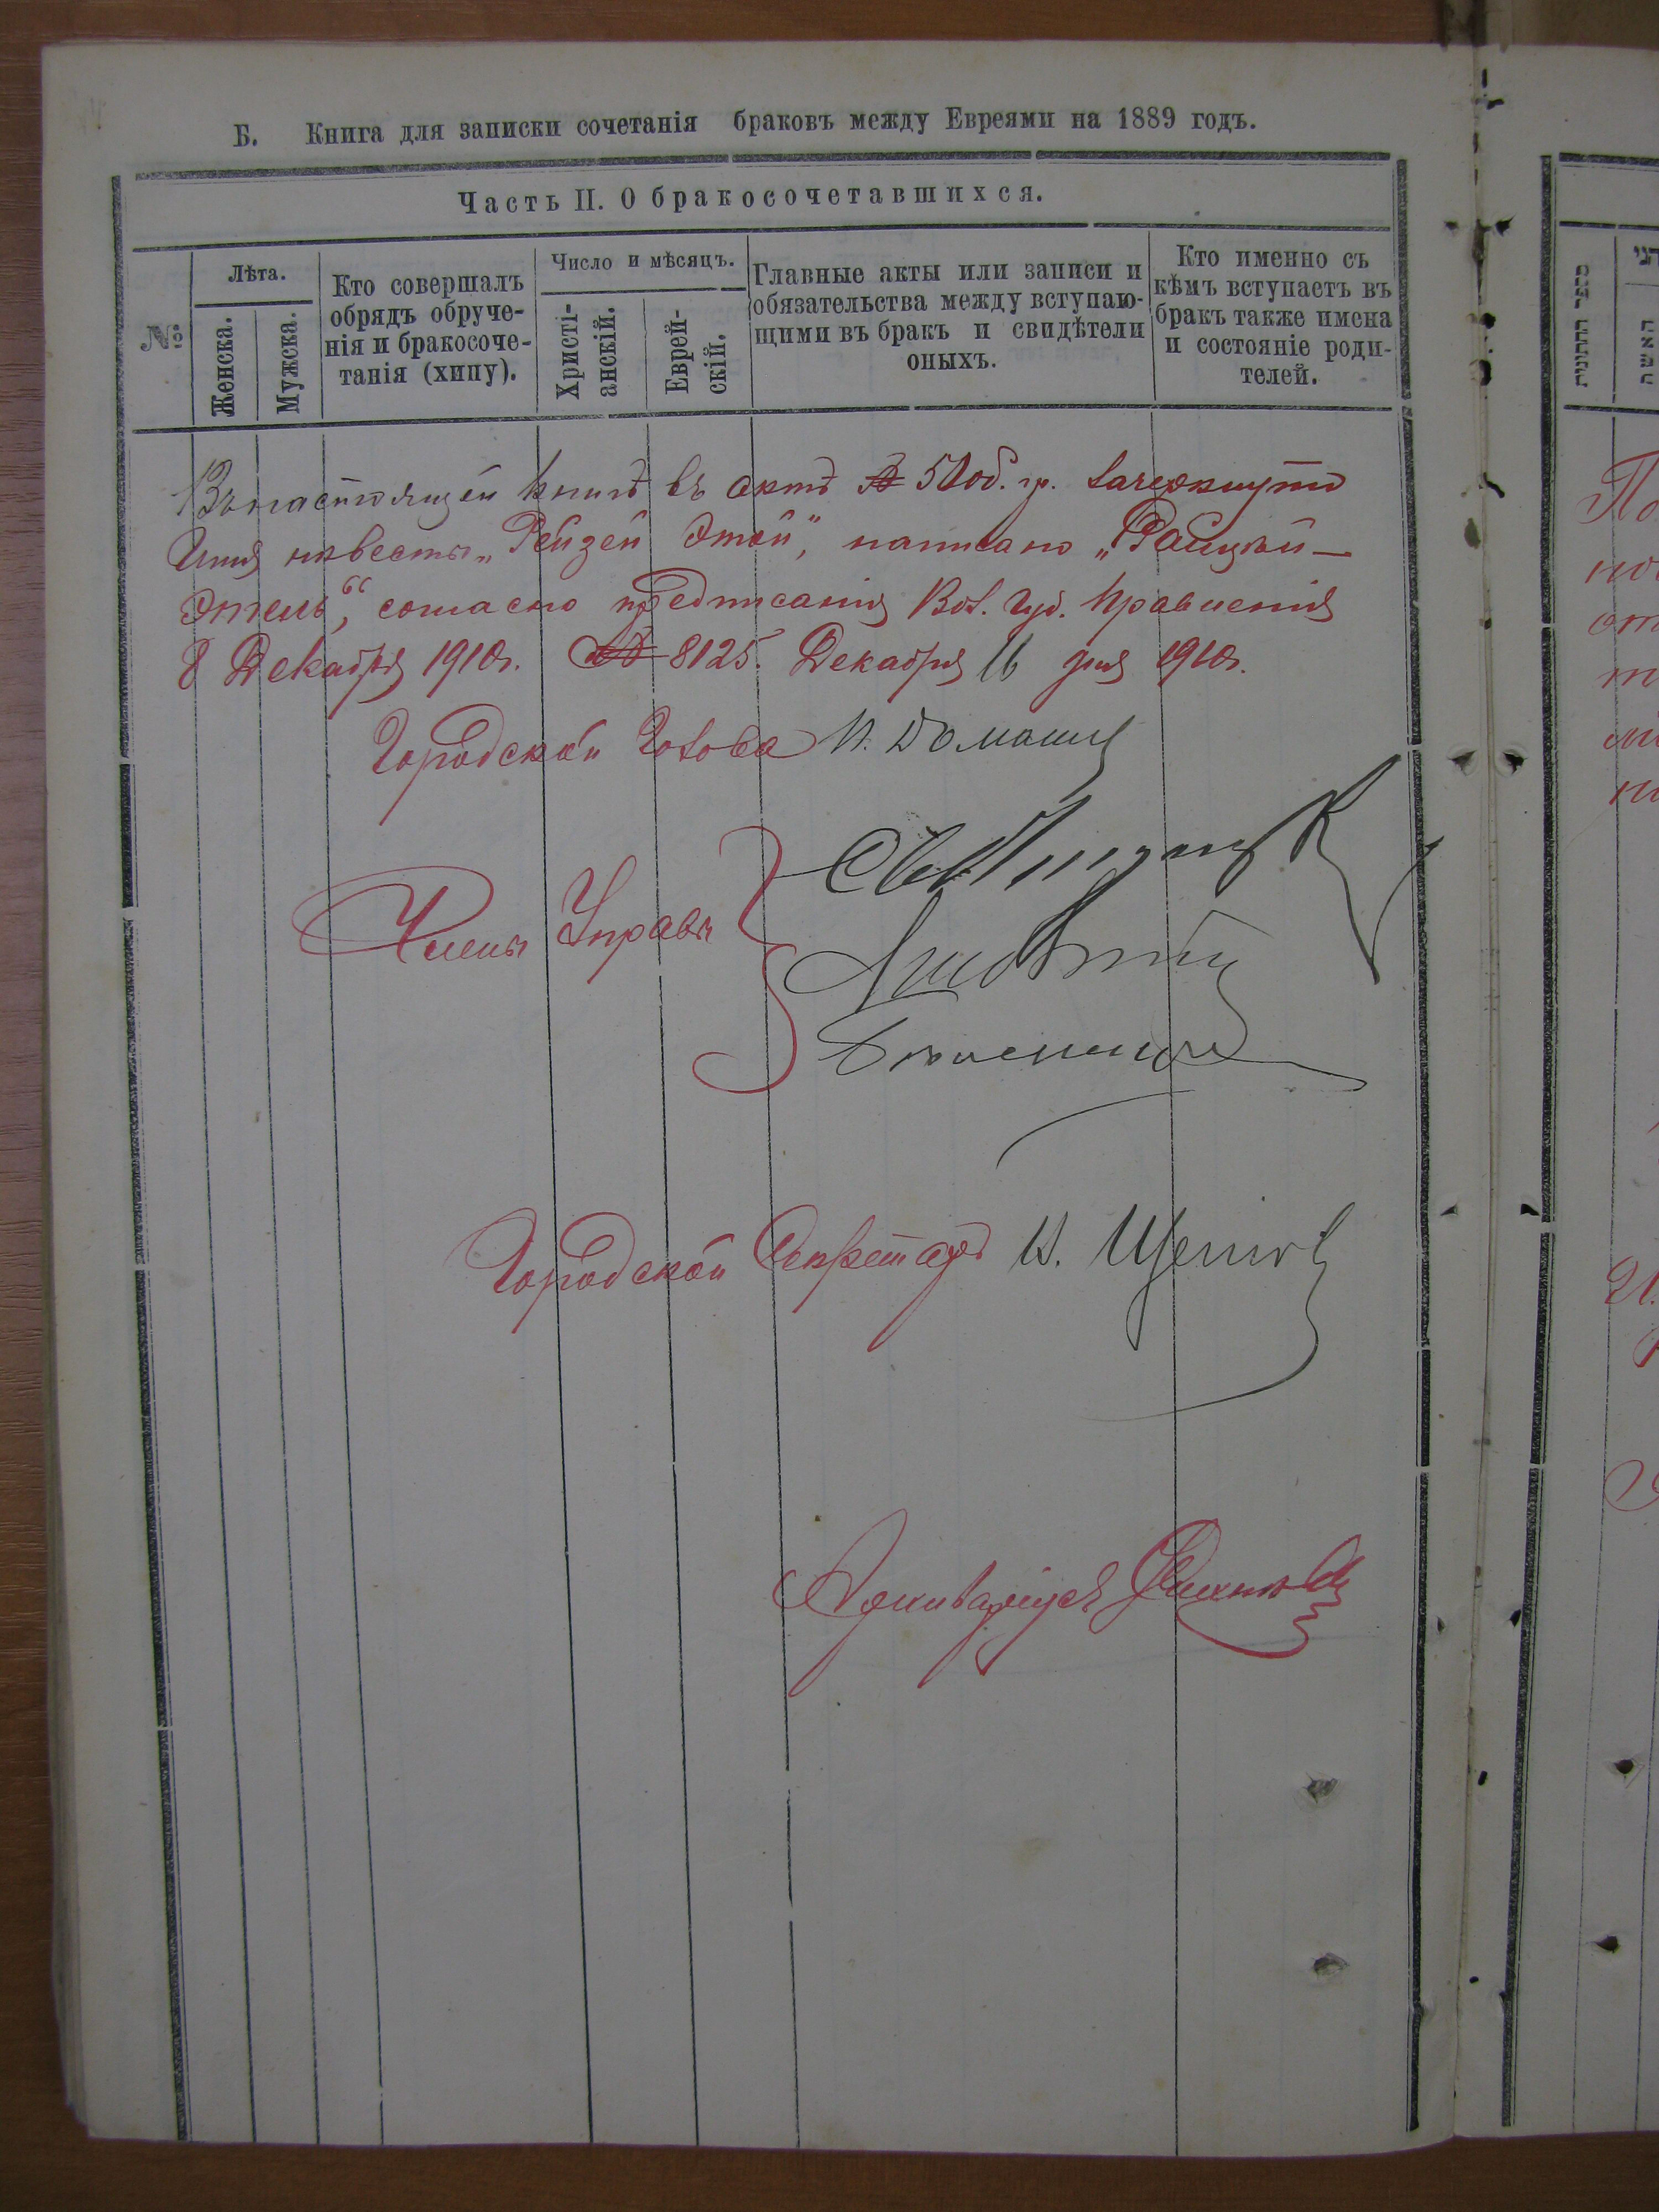 Б. Книга для записки сочетанія браковъ между Евреями на 1889 годъ.
Часть II. О бракосочетавшихся.
№
Лѣта.
Женска.
Мужска.
Кто совершалъ
обрядъ обруче-
нія и бракосоче-
танія (хипу).
Число и мѣсяцъ.
Христі-
анскій.
Еврей-
скій.
Главные акты или записи и
обязательства между вступаю-
щими въ бракъ и свидѣтели
оныхъ.
Кто именно съ
кѣмъ вступаетъ въ
бракъ также имена
и состояніе роди-
телей.
Въ настоящей книгѣ въ актѣ № 51 об. гр. зачеркнуто
имя невесты „Рейзей Этой", написано „Райцей-
Этель", согласно предписанія Вол. Губ. Правленія
8 Декабря 1910г. № 8125. Декабря 16 дня 1910г.
Городской Голова И. Домани
Члены Управы
Городской Секретарь И.
Архиваріусъ
ספר החתונות
האשה